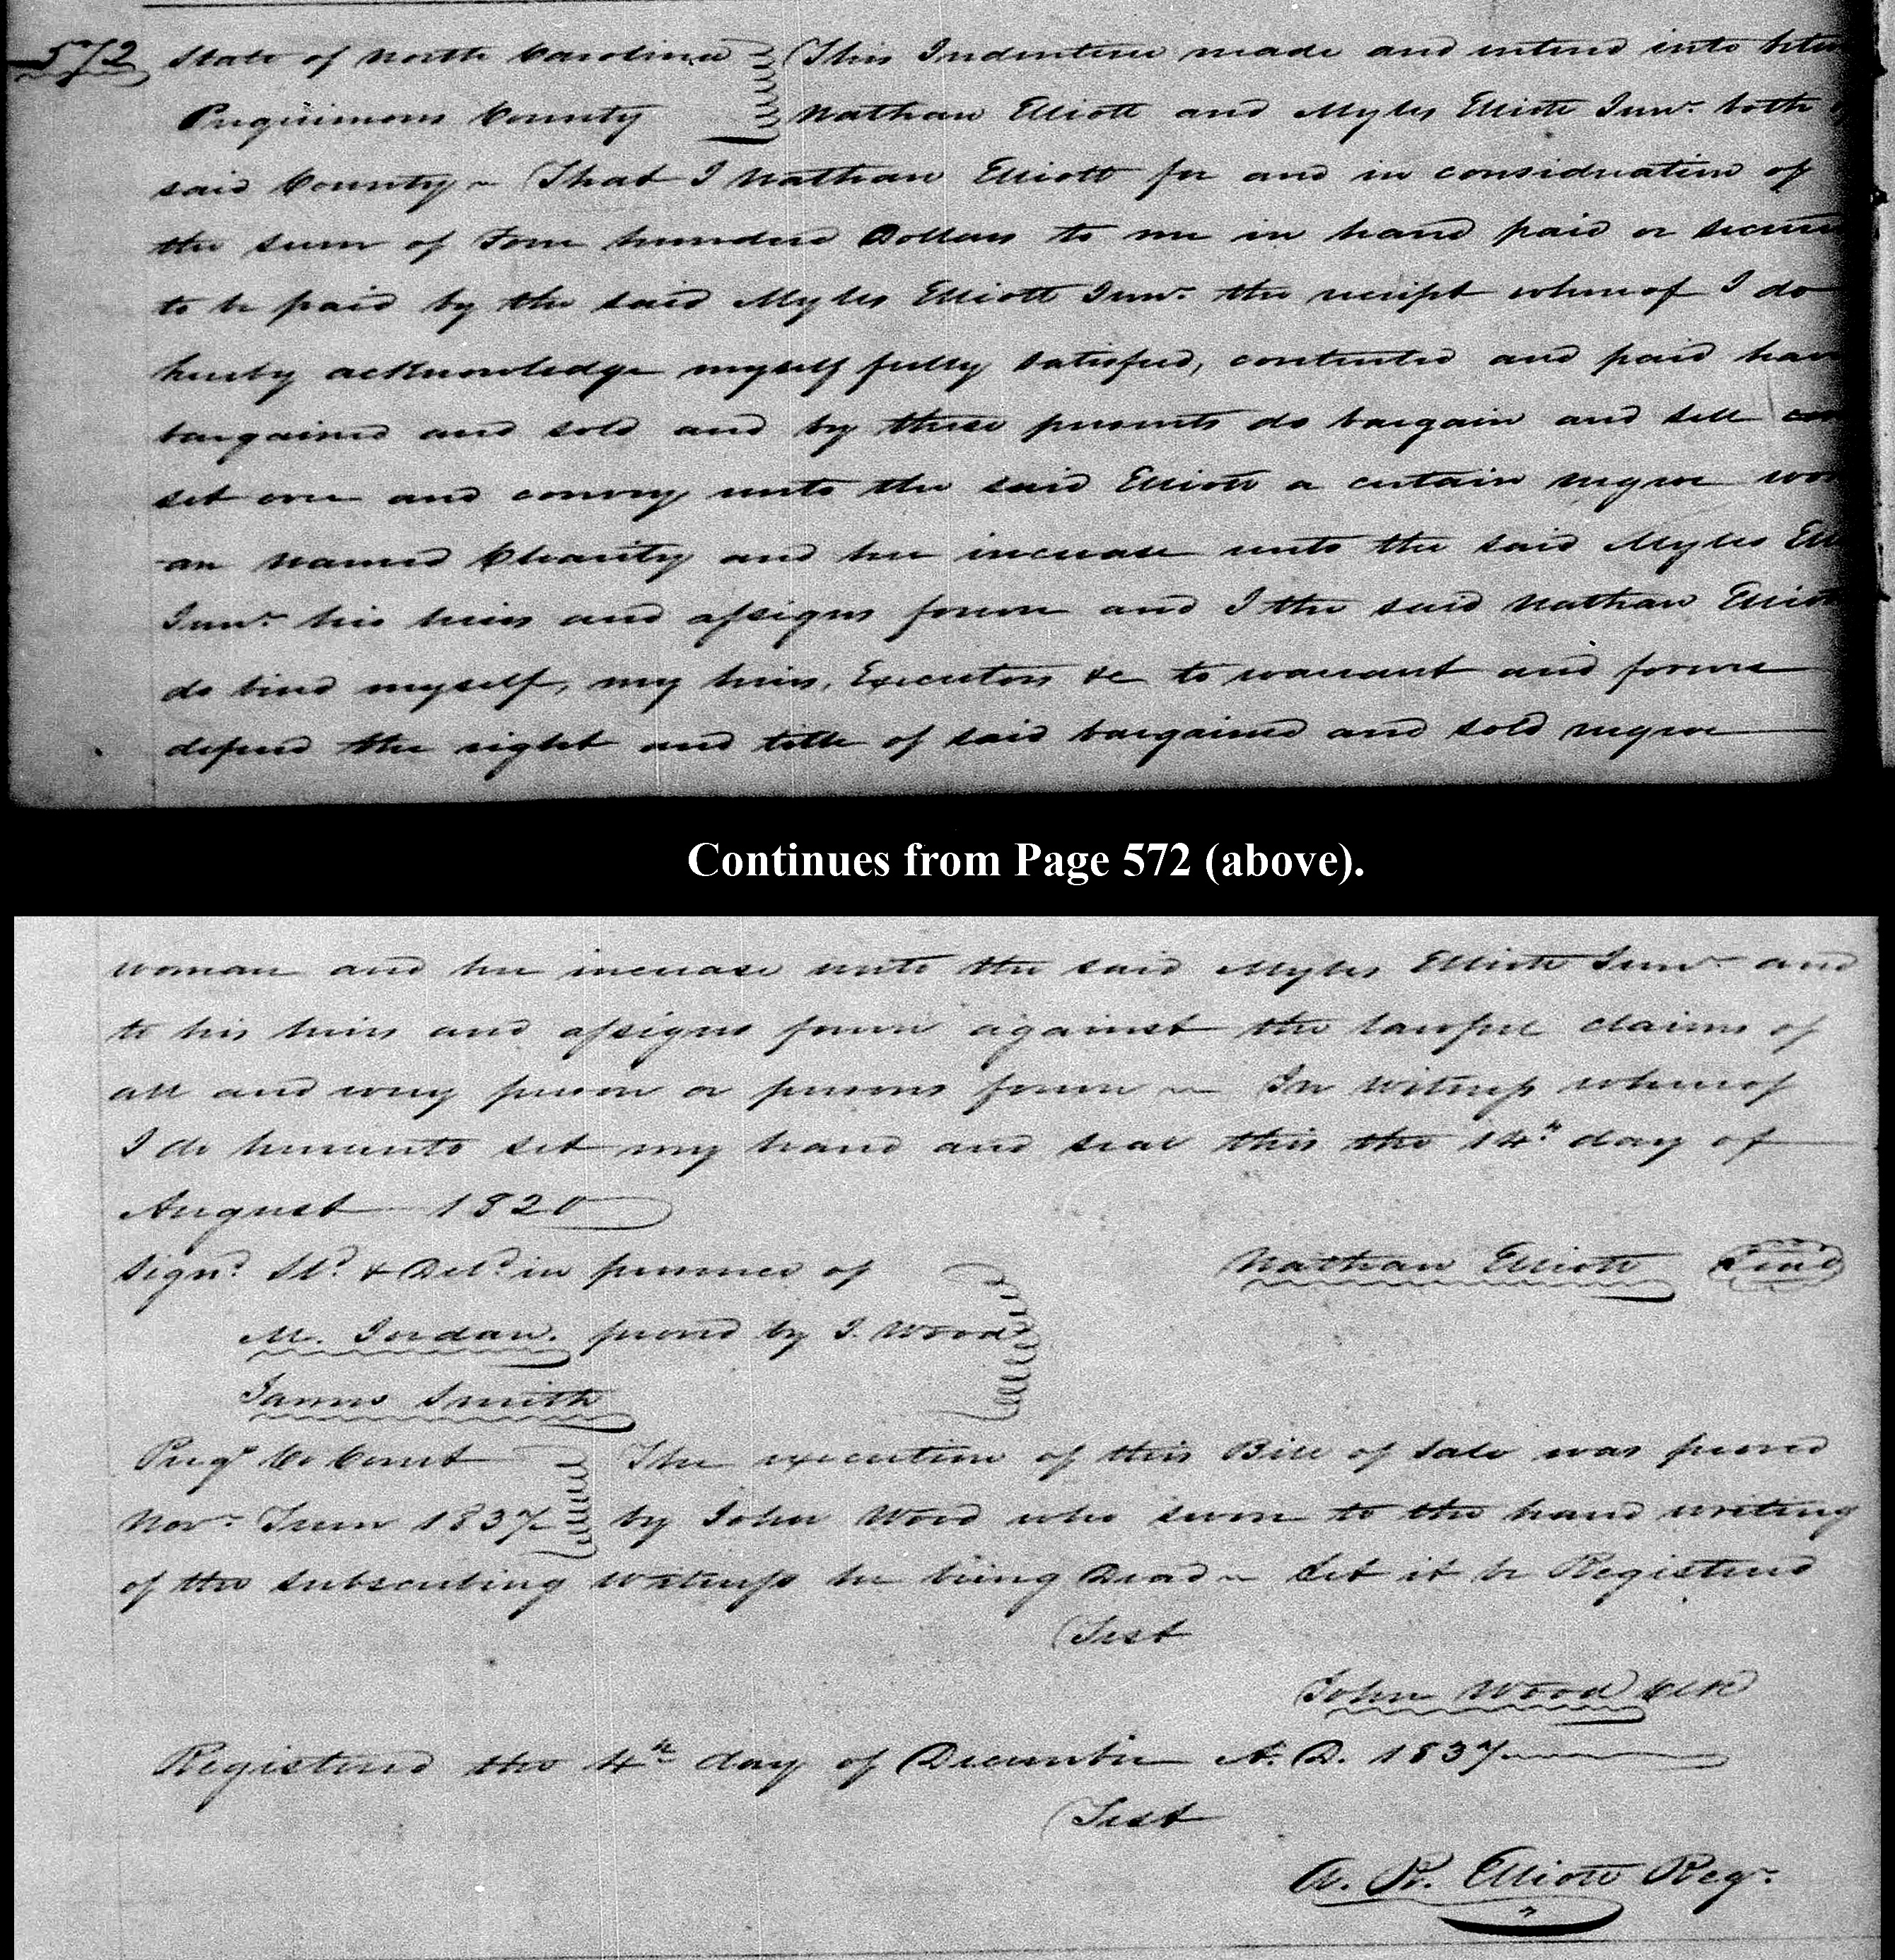 572 State of North Carolina This Indenture made and entered into betw
Perquimons County Nathan Elliott and Myles Elliott Junr. both
said County ~ That I Nathan Elliott for and in consideration of
the sum of Four hundred Dollars to me in hand paid or secured
to be paid by the said Myles Elliott Junr. the receipt whereof I do
hereby acknowledge myself fully satisfied, contented and paid have
bargained and sold and by these presents do bargain and sell
set over and convey unto the said Elliott a certain negroe wom
an named Charity and her increase unto the said Myles Elli
Junr. his heirs and assigns forever and I the said Nathan Elliott
do bind myself, my heirs, Executors &c to warrant and forever
defend the right and title of said bargained and sold negroe
Continues from Page 572 (above).
woman and her increase unto the said Myles Elliott Junr. and
to his heirs and assigns forever against the lawful claims of
all and every person or persons forever ~ In witness whereof
I do hereunto set my hand and seal this the 14th day of
August 1820
Signd. Sld. & Deld. in presence of Nathan Elliott Seal
M. Jordan. proved by J. Wood
James Smith
Perqs Co Court The execution of this Bill of Sale was proved
Novr. Term 1837 by John Wood who swore to the hand writing
of the subscribing witness he being Dead ~ Let it be Registered
Test
John Wood Clk
Registered the 4th day of December A. D. 1837
Test
A. R. Elliott Regr.